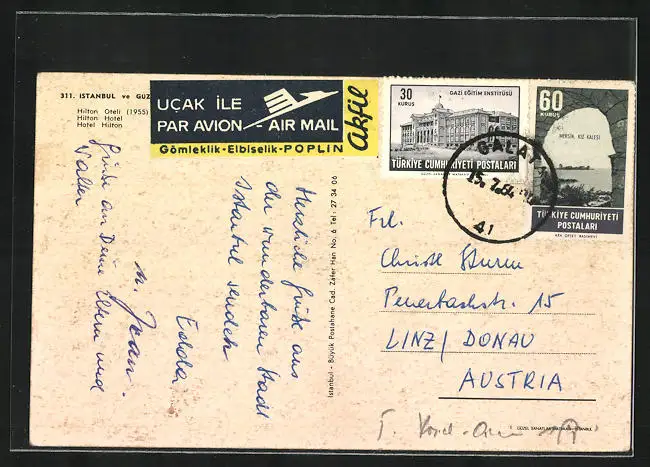 311. ISTANBUL ve GÜZ
Hilton Oteli (1955)
Hilton Hotel
Hotel Hilton
UÇAK İLE
PAR AVION - AIR MAIL
akfil
Gömleklik-Elbiselik-POPLIN
30
KURUŞ
GAZİ EĞİTİM ENSTİTÜSÜ
TÜRKİYE CUMHURİYETİ POSTALARI
60
KURUŞ
MERSİN, KIZ KALESİ
TÜRKİYE CUMHURİYETİ
POSTALARI
GALAT
15.7.64
41
Herzliche Grüße aus
der wunderbaren Stadt
Istanbul senden
Edda
u. Joan.
Grüße an Deine Eltern und
Istanbul - Büyük Postahane Cad. Zafer Han No. 6 Tel: 27 34 06
Frl.
Christl Sturm
15
LINZ/DONAU
AUSTRIA